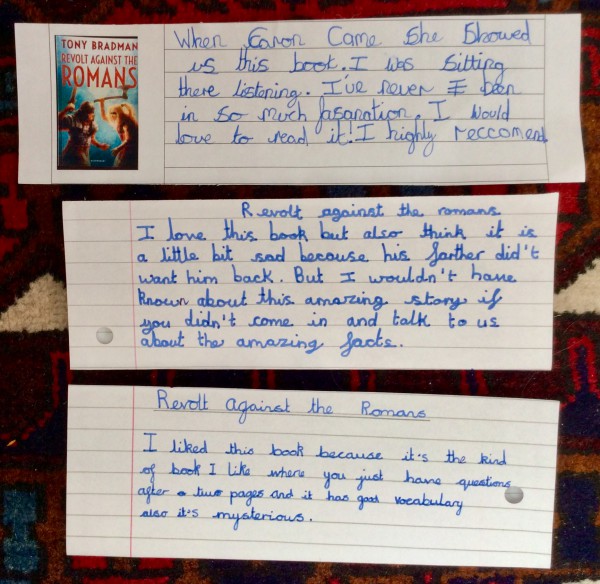 TONY BRADMAN
REVOLT AGAINST THE
ROMANS
When Caron Came She Showed
us this book. I was Sitting
there listening. I've never I been
in so much fasanation. I would
love to read it! I highly reccomend.
Revolt against the romans
I love this book but also think it is
a little bit sad because his farther did't
want him back. But I wouldn't have
known about this amazing story if
you didn't come in and talk to us
about the amazing facts.
Revolt against the Romans
I liked this book because it's the kind
of book I like where you just have questions
after a two pages and it has good vocabulary
also it's mysterious.